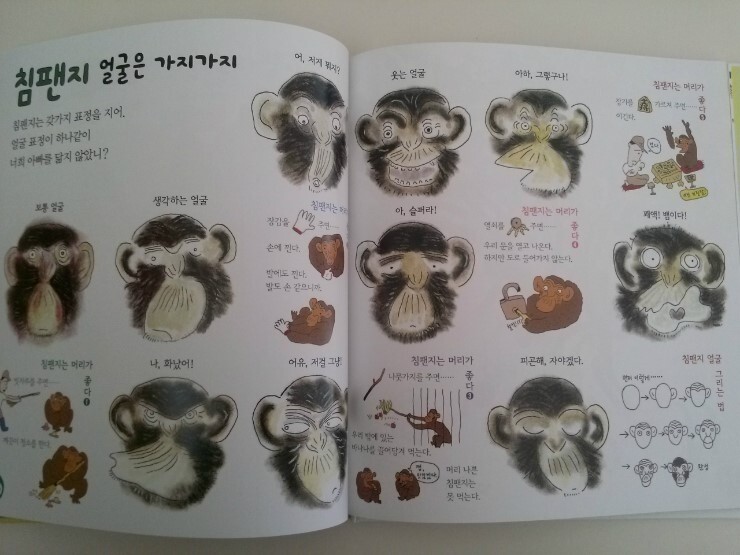 침팬지 얼굴은 가지가지
침팬지는 갖가지 표정을 지어.
얼굴 표정이 하나같이
너희 아빠를 닮지 않았니?
어, 저게 뭐지?
보통 얼굴
생각하는 얼굴
침팬지는 머리
장갑을
주면……
손에 낀다.
발에도 낀다.
발도 손 같으니까.
침팬지는 머리가 좋다 1
빗자루를 주면……
깨끗이 청소를 한다.
나, 화났어!
어유, 저걸 그냥
웃는 얼굴
아하, 그렇구나!
침팬지는 머리가 좋다 5
장기를 가르쳐 주면……
이긴다.
아, 슬퍼라!
침팬지는 머리가 좋다 4
열쇠를 주면……
우리 문을 열고 나온다.
하지만 도로 들어가지 않는다.
꽤액! 뱀이다!
침팬지는 머리가 좋다 3
나뭇가지를 주면……
우리 밖에 있는
바나나를 끌어당겨 먹는다.
머리 나쁜
침팬지는
못 먹는다.
피곤해, 자야겠다.
침팬지 얼굴 그리는 법
완성